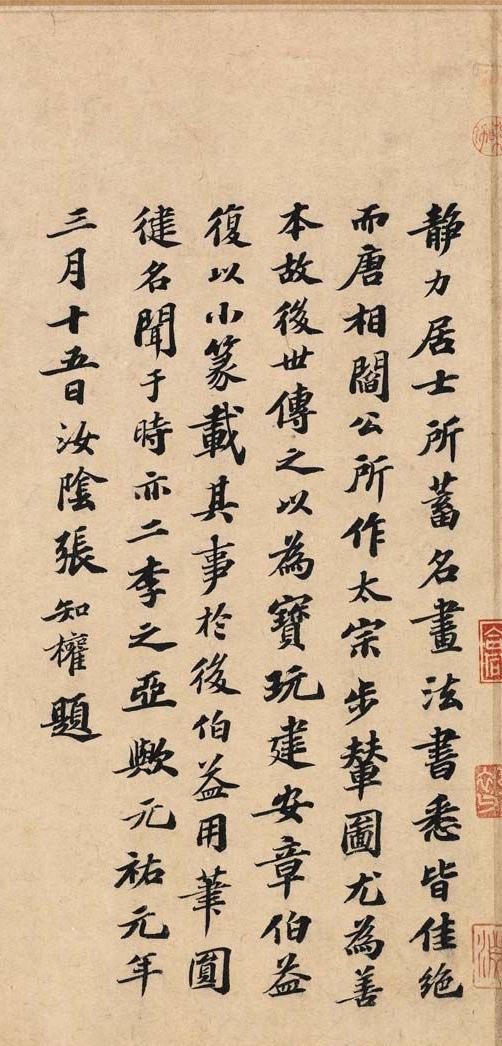 静力居士所蓄名畫法書悉皆佳絶
而唐相閻公所作太宗步輦圖尤為善
本故後世傳之以為寶玩建安章伯益
復以小篆載其事於後伯益用筆圓
健名聞于時亦二李之亞歟元祐元年
三月十五日汝陰張知權題